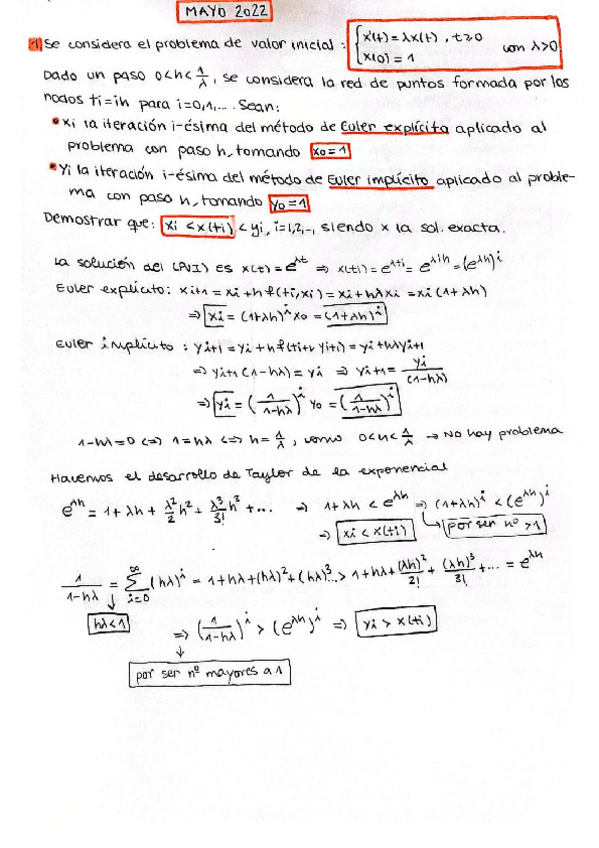 MAYO 2022
1 Se considera el problema de valor inicial: { x'(t) = λx(t), t≥0
x(0) = 1 con λ>0
Dado un paso 0<h<1/λ, se considera la red de puntos formada por los
nodos ti=ih para i=0,1,... Sean:
• xi la iteración i-ésima del método de Euler explícito aplicado al
problema con paso h, tomando x0=1
• Yi la iteración i-ésima del método de Euler implícito aplicado al proble-
ma con paso h, tomando y0=1
Demostrar que: xi < x(ti) < yi, i=1,2,..., siendo x la sol. exacta.
La solución del (PVI) es x(t) = e^λt ⇒ x(ti) = e^λti = e^λih = (e^λh)^i
Euler explícito: xi+1 = xi + h f(ti,xi) = xi + hλxi = xi(1+λh)
⇒ xi = (1+λh)^i x0 = (1+λh)^i
Euler implícito: yi+1 = yi + h f(ti+1, yi+1) = yi + hλyi+1
⇒ yi+1(1-hλ) = yi ⇒ yi+1 = yi/(1-hλ)
⇒ yi = (1/(1-hλ))^i y0 = (1/(1-hλ))^i
1-hλ=0 ⇔ 1=hλ ⇔ h=1/λ, como 0<h<1/λ → No hay problema
Hacemos el desarrollo de Taylor de la exponencial
e^λh = 1 + λh + λ²/2 h² + λ³/3! h³ + ... ⇒ 1+λh < e^λh ⇒ (1+λh)^i < (e^λh)^i
⇒ xi < x(ti) ↳ por ser nº >1
1/(1-hλ) = ∑_{i=0}^∞ (hλ)^i = 1+hλ+(hλ)²+(hλ)³... > 1+hλ+(λh)²/2!+(λh)³/3!+... = e^λh
↓
hλ<1
⇒ (1/(1-hλ))^i > (e^λh)^i ⇒ yi > x(ti)
↓
por ser nº mayores a 1